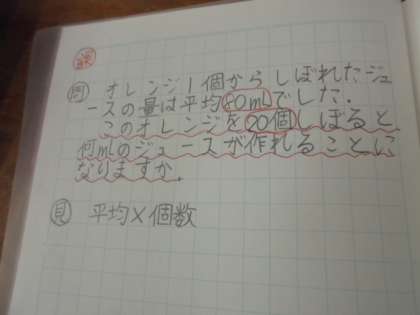 問 オレンジ1個からしぼれたジュ
ースの量は平均80mLでした.
このオレンジを20個しぼると,
何mLのジュースが作れることに
なりますか.
見 平均×個数